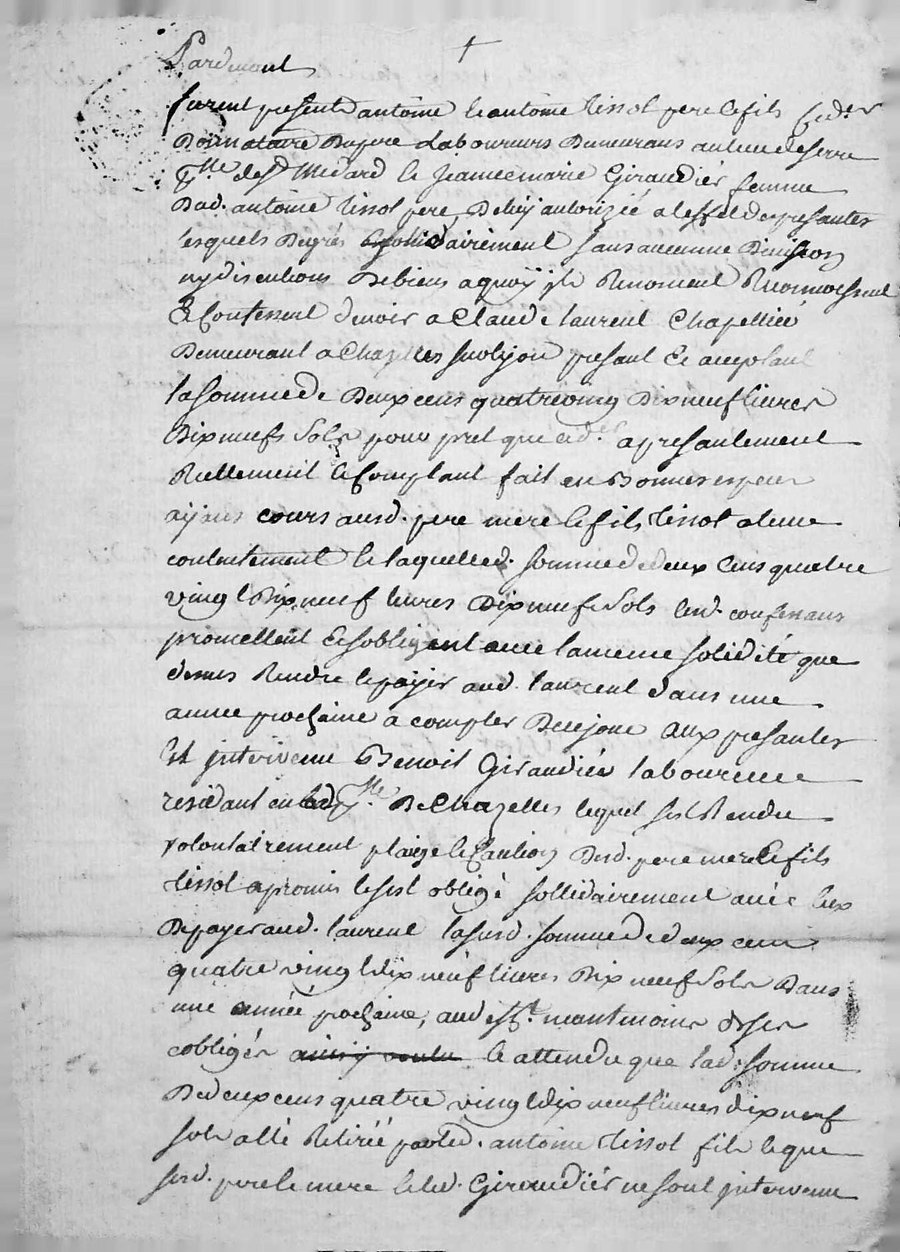 Pardevant
furent presents antoine & antoine tissot pere & fils
Donnataire Dupere Laboureurs Demeurans au lieu de serre
pss.e de st Medard & Jeanne marie Giraudier femme
Dud. antoine tissot pere, De luy autorizée a leffet des presantes
lesquels Degrés & sollidairement sans aucunne Division
ny discutions De biens a quoy ils Renoncent Reconnoissent
& Confessent devoir a Claude laurent Chapellier
Demeurant a Chazelles sur lyon presant & acceptant
la somme de Deux cens quatre vingt Dix neuf livres
Dix neufs Sols pour pret que led. a presantement
Reellement & Comptant fait en Bonnes especes
ayans cours ausd. pere mere & fils tissot a leur
contentement & laquelle d. somme de deux Cens quatre
vingt Dix neuf livres Dix neuf Sols lesd. confessans
promettent & sobligent avec la meme solidité que
dessus Rendre & payer aud. laurent dans une
année prochaine a compter De ce jour aux presantes
Est intervenu Benoit Giraudier laboureur
residant en lad. pss.e De Chazelles lequel sest Rendu
volontairement plaige & Caution Desd. pere mere & fils
tissot a promis & sest obligé sollidairement avec Eux
De payer aud. laurent lasusd. somme de deux cens
quatre vingt dix neuf livres Dix neuf Sols Dans
une année prochaine, neantmoins de ses
cobligés ainsy voulu & attendu que lad. somme
De deux cens quatre vingt dix neuf livres dix neuf
sols a été Retirée par led. antoine tissot fils & que
sesd. pere & mere & led. Giraudier ne sont intervenu